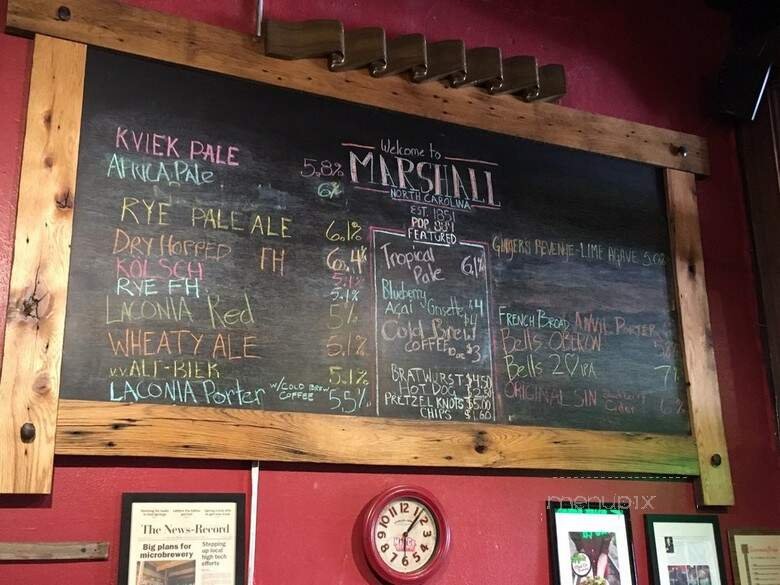 KVIEK PALE 5.8%
AFRICA PALE 6%
RYE PALE ALE 6.1%
DRY HOPPED FH 6.4%
KOLSCH 5.1%
RYE FH 5.1%
LACONIA Red 5%
WHEATY ALE 5.1%
ALT-BIER 5.1%
LACONIA Porter W/COLD BREW COFFEE 5.5%
Welcome to
MARSHALL
NORTH CAROLINA
EST. 1851
POP.
FEATURED
Tropical Pale 6.1%
Blueberry
Açai Grisette $4
Cold Brew $4
COFFEE $3
BRATWURST $4.50
HOT DOG
PRETZEL KNOTS $5.00
CHIPS $1.60
GINGERS REVENGE-LIME AGAVE
FRENCH BROAD ANVIL PORTER
Bells OBERON
Bells 2♡IPA 7%
ORIGINAL SIN Cider 6%
The News-Record
Big plans for
microbrewery
Stepping
up local
high tech
efforts
12
1
2
3
4
5
6
7
8
9
10
11
menupix